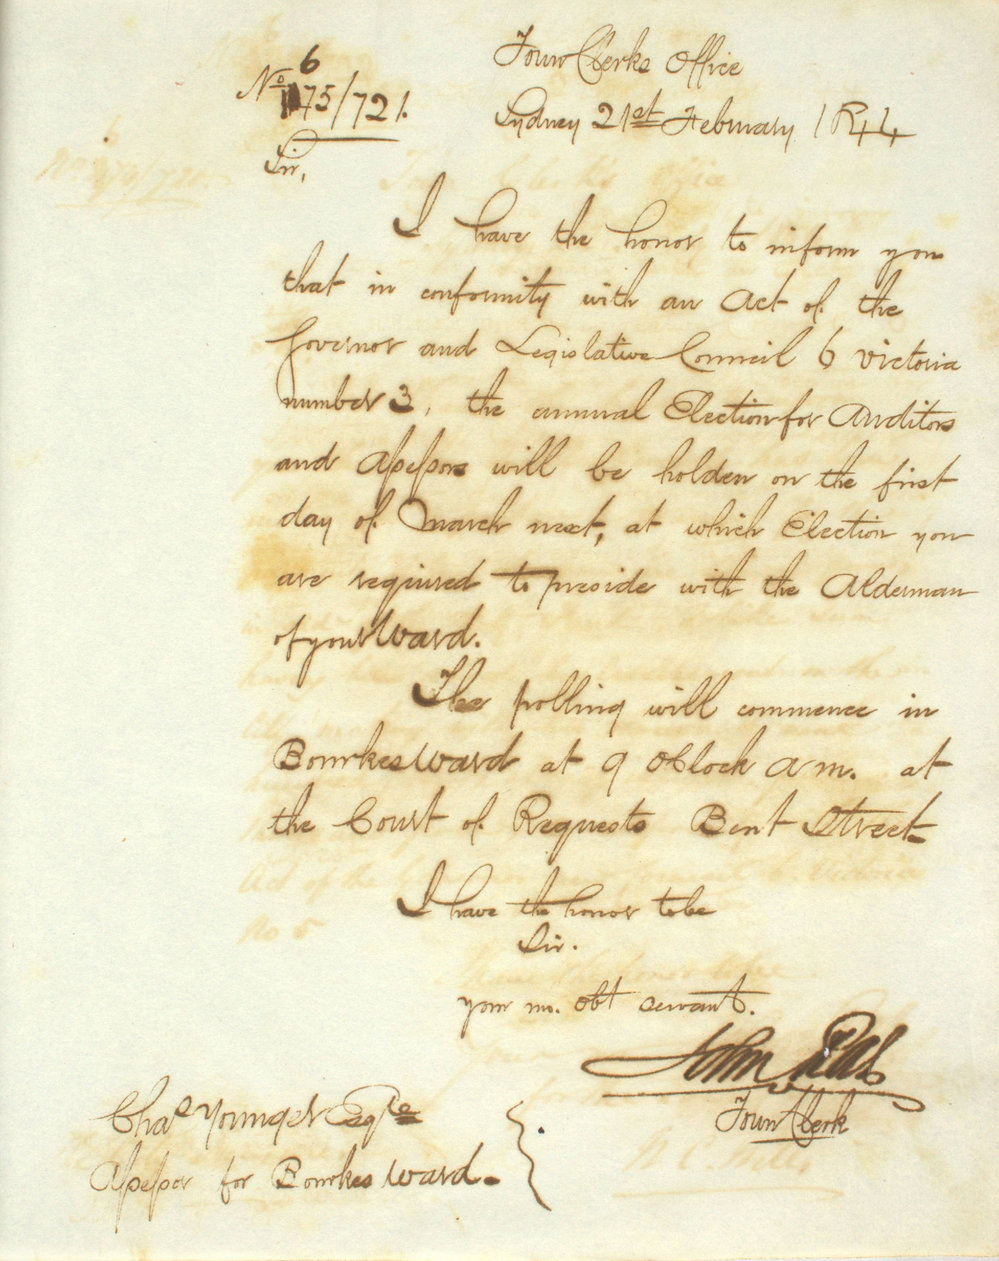 Town Clerks Office
No 6
175/721.
Sydney 21st February 1844
Sir,
I have the honor to inform you
that in conformity with an Act of the
Governor and Legislative Council 6 Victoria
number 3, the annual Election for Auditors
and Assessors will be holden on the first
day of March next, at which Election you
are required to preside with the Alderman
of your Ward.
The polling will commence in
Bourkes Ward at 9 oClock am. at
the Court of Requests Bent Street
I have the honor to be
Sir.
your mo. obt servant.
John
Town Clerk
Chas Younger Esqre
Assessor for Bourkes Ward.